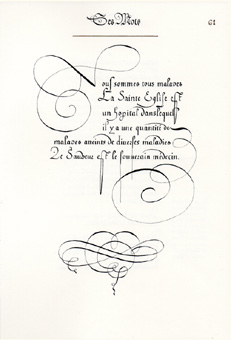 Des Mots
61
Nous sommes tous malades
La Sainte Eglise est
un hopital dans lequel
il y a une quantite de
malades atteints de diverses maladies
Le Sauveur est le souverain medecin.